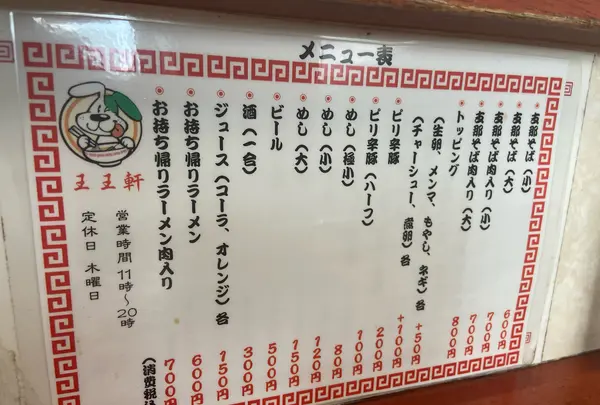 メニュー表
支那そば(小) 600円
支那そば(大) 700円
支那そば肉入り(小) 700円
支那そば肉入り(大) 800円
トッピング
(生卵、メンマ、もやし、ネギ)各 +50円
(チャーシュー、煮卵)各 +100円
ピリ辛豚 200円
ピリ辛豚(ハーフ) 100円
めし(極小) 80円
めし(小) 120円
めし(大) 150円
ビール 500円
酒(一合) 300円
ジュース(コーラ、オレンジ)各 150円
お持ち帰りラーメン 600円
お持ち帰りラーメン肉入り 700円
(消費税込
王王軒
営業時間 11時〜20時
定休日 木曜日